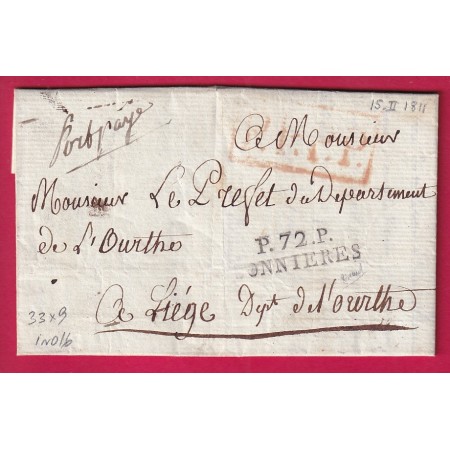 15.II 1811
Port payé
A Monsieur
Monsieur Le Prefet du Departement
de L'Ourthe
P.72.P.
ONNIERES
A Liége Dept de l'ourthe
33x9